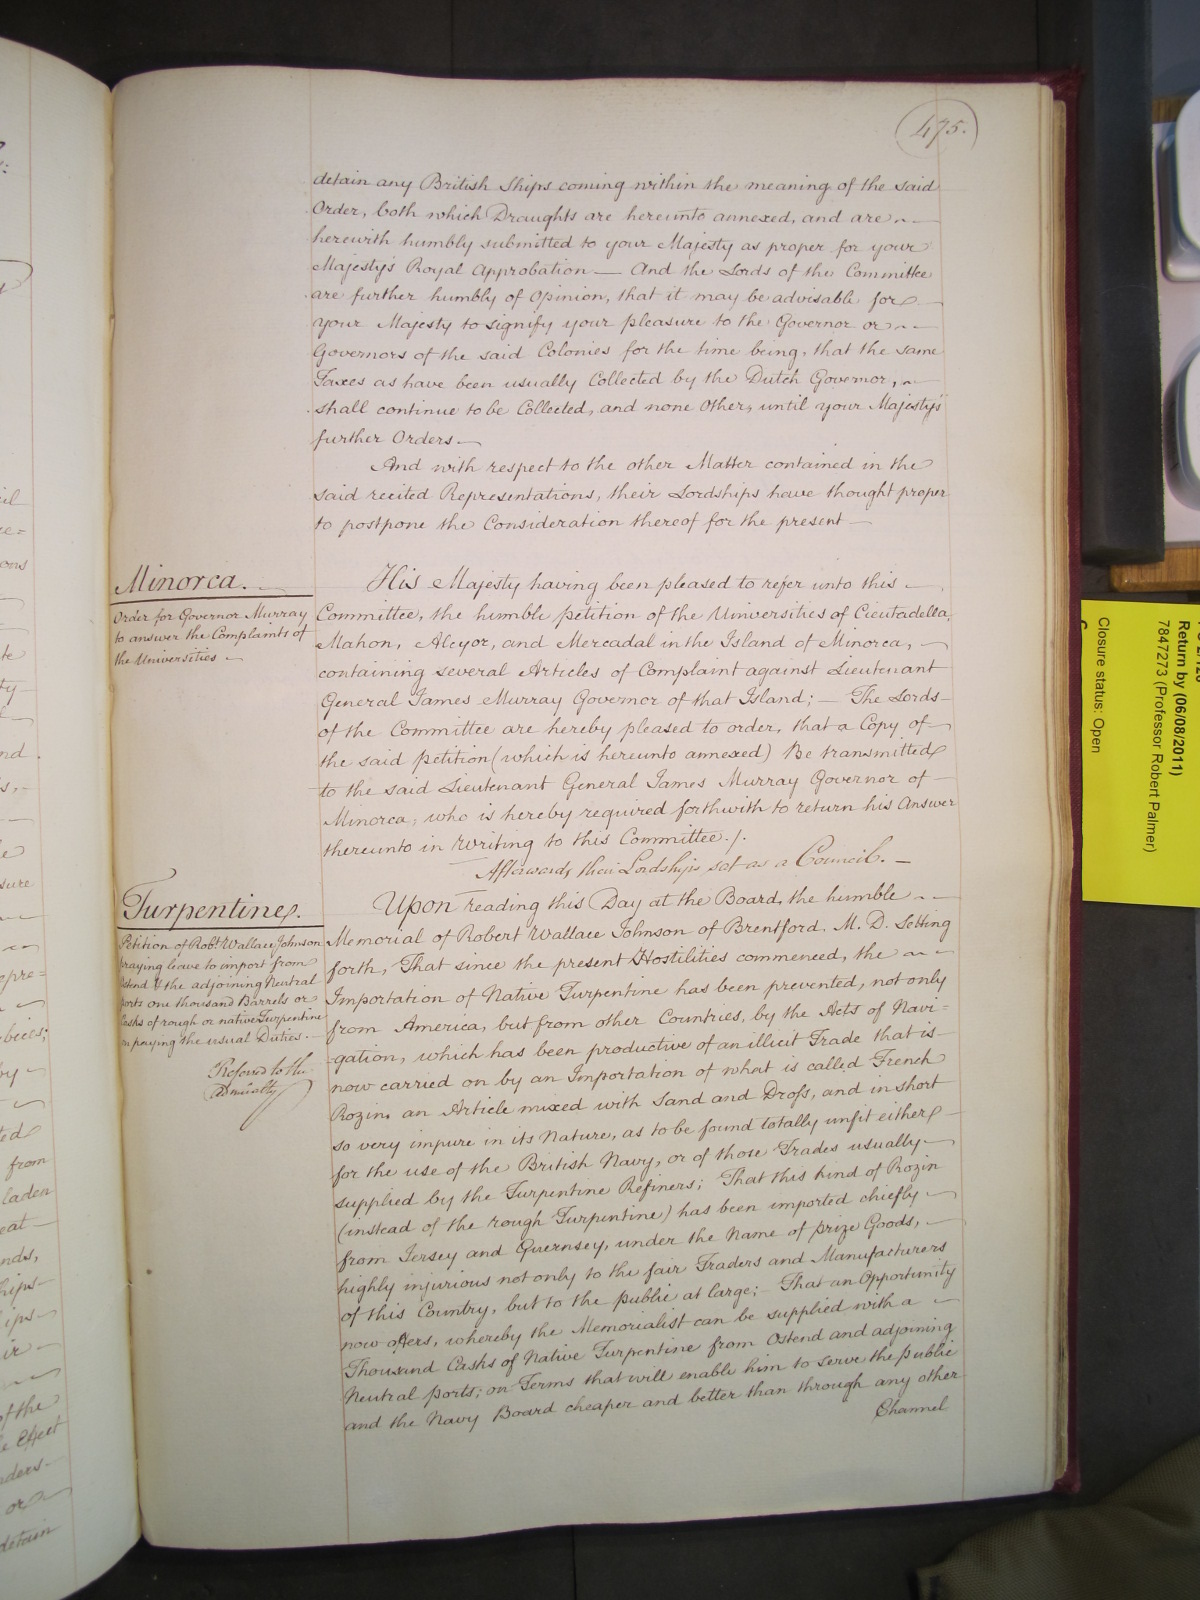 475.
detain any British Ships coming within the meaning of the said
Order, both which Draughts are hereunto annexed, and are
herewith humbly submitted to your Majesty as proper for your
Majesty's Royal Approbation — And the Lords of the Committee
are further humbly of Opinion, that it may be advisable for
your Majesty to signify your pleasure to the Governor or
Governors of the said Colonies for the time being, that the same
Taxes as have been usually Collected by the Dutch Governor,
shall continue to be Collected, and none Other, until your Majesty's
further Orders —
And with respect to the other Matter contained in the
said recited Representations, their Lordships have thought proper
to postpone the Consideration thereof for the present —
Minorca.
Order for Governor Murray
to answer the Complaints of
the Universities —
His Majesty having been pleased to refer unto this
Committee, the humble petition of the Universities of Cieutadella,
Mahon, Aleyor, and Mercadal in the Island of Minorca,
containing several Articles of Complaint against Lieutenant
General James Murray Governor of that Island; — The Lords
of the Committee are hereby pleased to order, that a Copy of
the said petition (which is hereunto annexed) Be transmitted
to the said Lieutenant General James Murray Governor of
Minorca, who is hereby required forthwith to return his Answer
thereunto in Writing to this Committee./.
Afterwards their Lordships sat as a Council. —
Turpentine.
Petition of Robt. Wallace Johnson
praying leave to import from
Ostend & the adjoining Neutral
ports one thousand Barrels or
Casks of rough or native Turpentine
on paying the usual Duties. —
Refered to the
Admiralty
Upon reading this Day at the Board, the humble
Memorial of Robert Wallace Johnson of Brentford. M. D. Setting
forth, That since the present Hostilities commenced, the
Importation of Native Turpentine has been prevented, not only
from America, but from other Countries, by the Acts of Navi=
=gation, which has been productive of an illicit Trade that is
now carried on by an Importation of what is called French
Rozin, an Article mixed with Sand and Dross, and in short
so very impure in its Nature, as to be found totally unfit either
for the use of the British Navy, or of those Trades usually
supplied by the Turpentine Refiners; That this kind of Rozin
(instead of the rough Turpentine) has been imported chiefly
from Jersey and Guernsey, under the Name of prize Goods,
highly injurious not only to the fair Traders and Manufacturers
of this Country, but to the public at large; — That an Opportunity
now offers, whereby the Memorialist can be supplied with a
Thousand Casks of Native Turpentine from Ostend and adjoining
Neutral ports; on Terms that will enable him to serve the public
and the Navy Board cheaper and better than through any other
Channel
Return by (06/08/2011)
7847273 (Professor Robert Palmer)
Closure status: Open